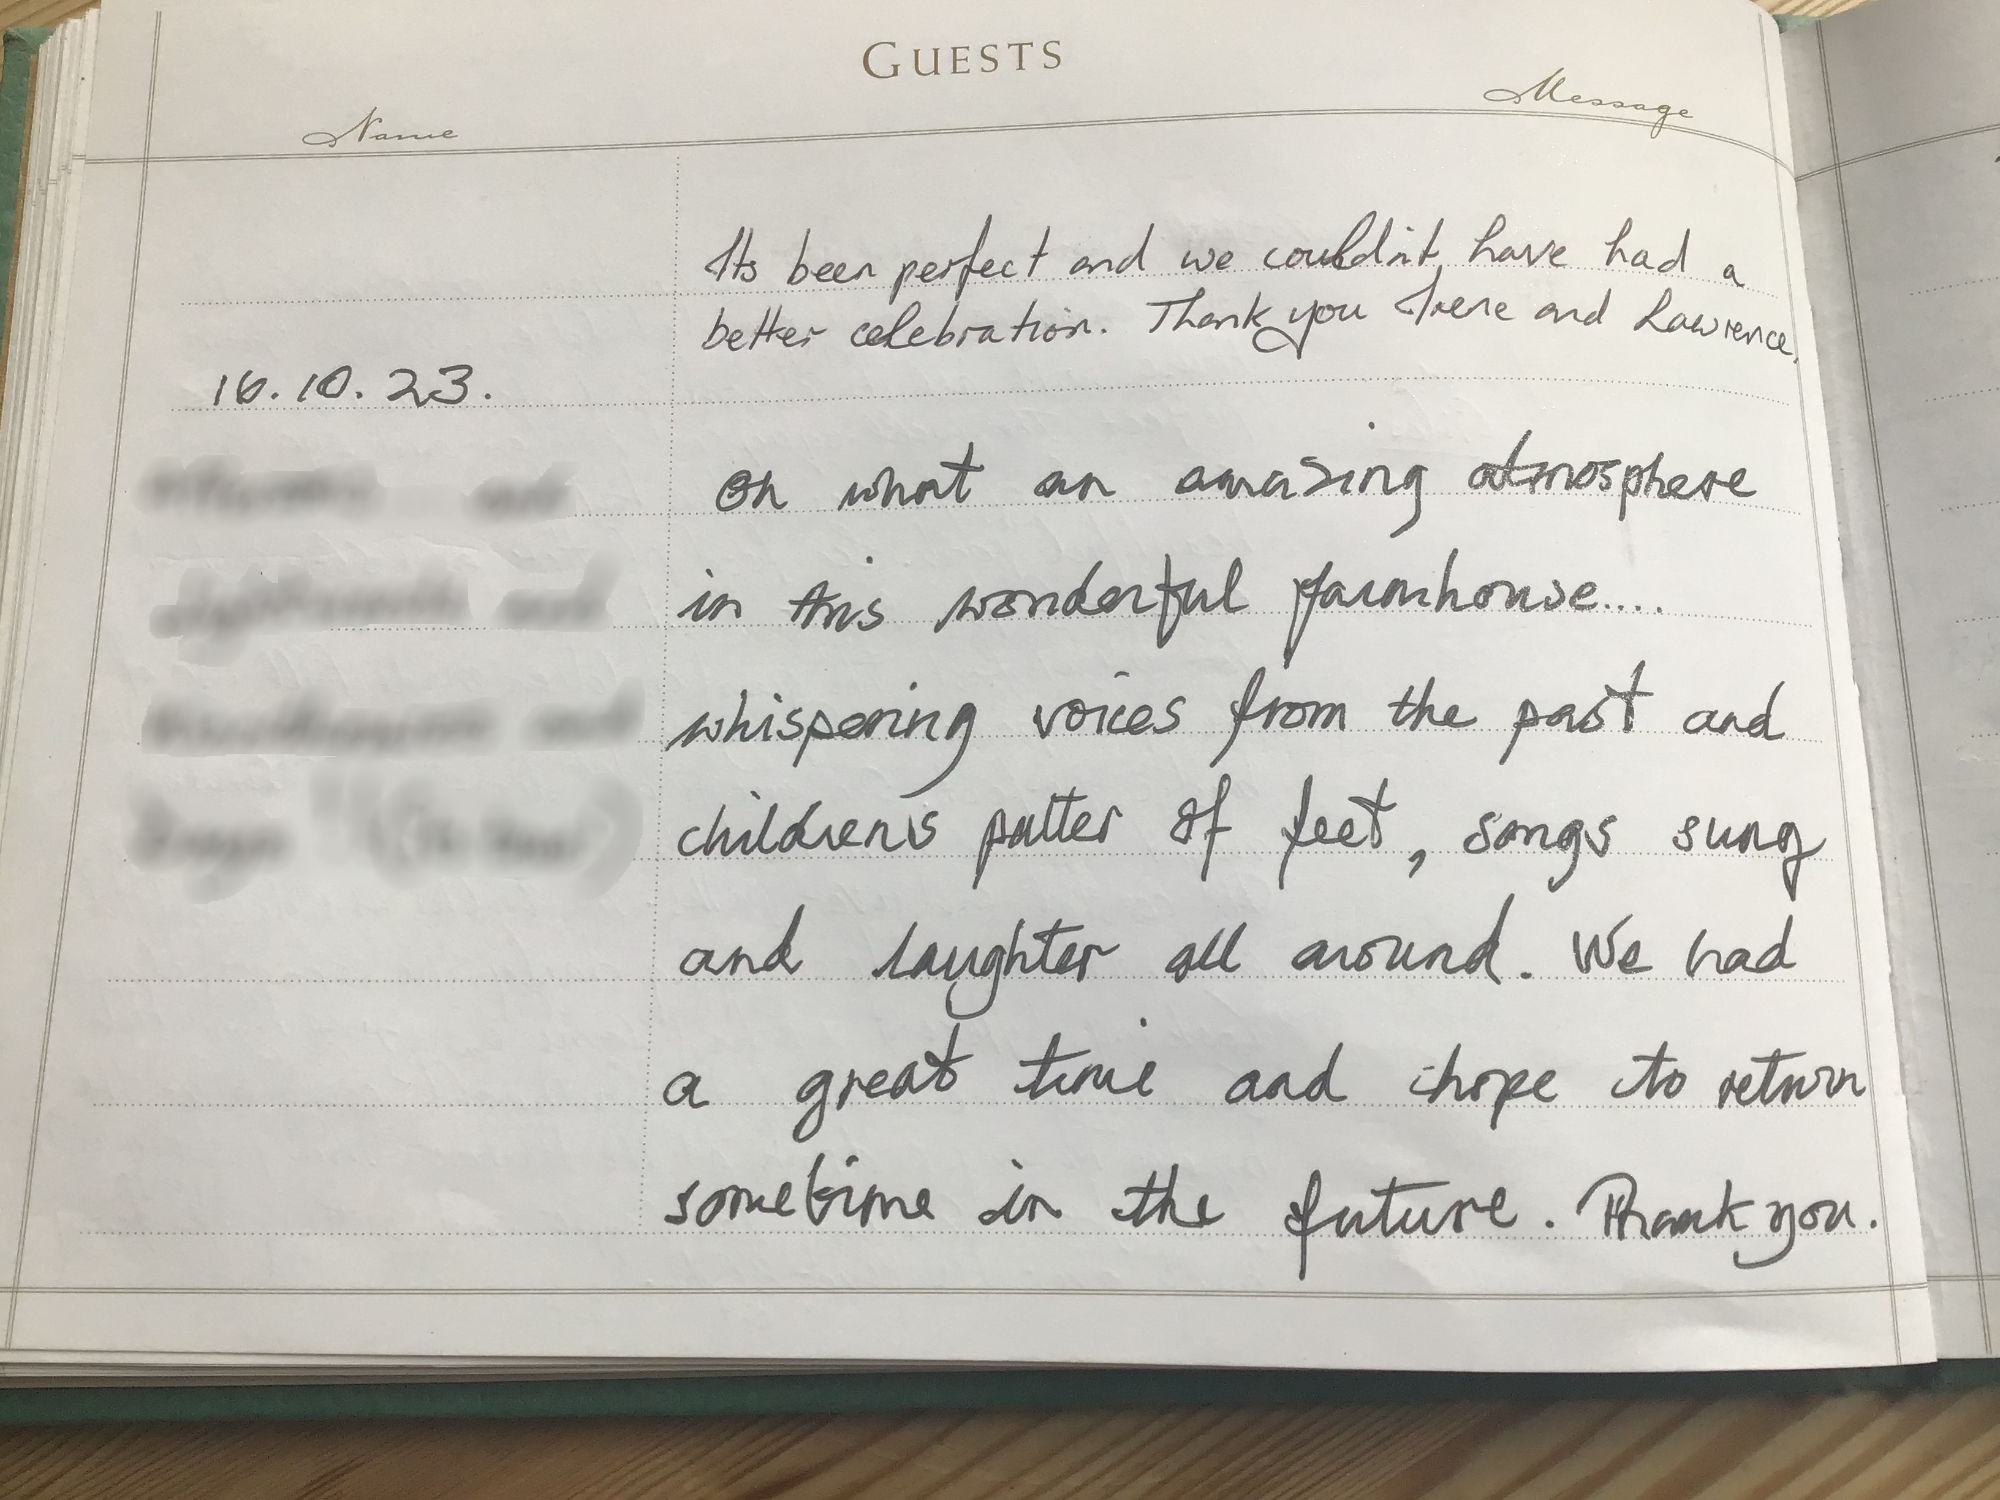 GUESTS
Name Message
Its been perfect and we couldn't have had a
better celebration. Thank you Irene and Lawrence.
16.10.23.
Oh what an amazing atmosphere
in this wonderful farmhouse....
whispering voices from the past and
children's patter of feet, songs sung
and laughter all around. We had
a great time and hope to return
sometime in the future. Thank you.